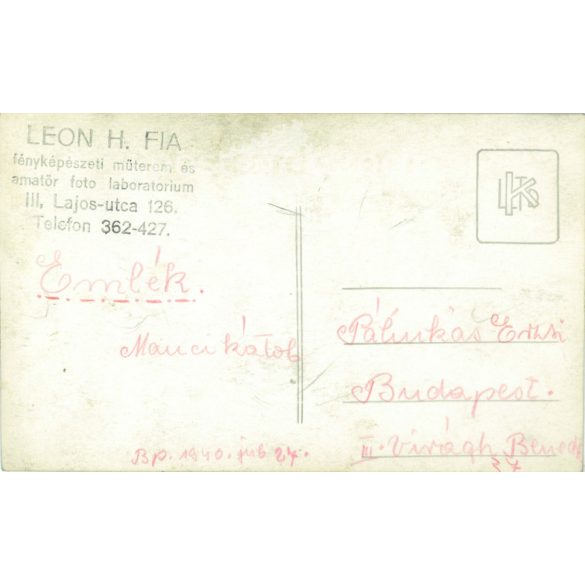 LEON H. FIA
fényképészeti műterem és
amatőr foto laboratorium
III, Lajos-utca 126.
Telefon 362-427.
Emlék.
Mancikátol
Bp. 1940. juli 27.
Pálinkás Erzsi
Budapest.
III. Virágh Bened